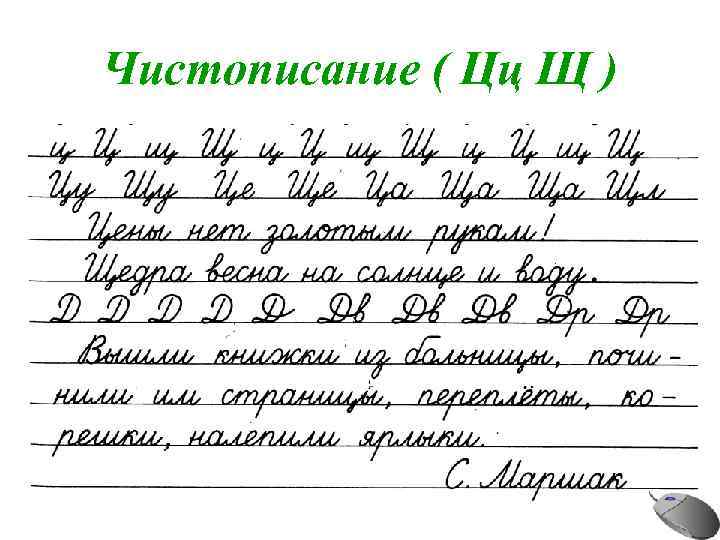 Чистописание ( Цц Щ )
ц Ц щ Щ ц Ц щ Щ ц Ц щ Щ
Цу Щу Це Ще Ца Ща Ща Щл
Цены нет золотым рукам!
Щедра весна на солнце и воду.
Д Д Д Д Д Дв Дв Дв Др Др
Вышли книжки из больницы, почи-
нили им страницы, переплёты, ко-
решки, налепили ярлыки.
С. Маршак